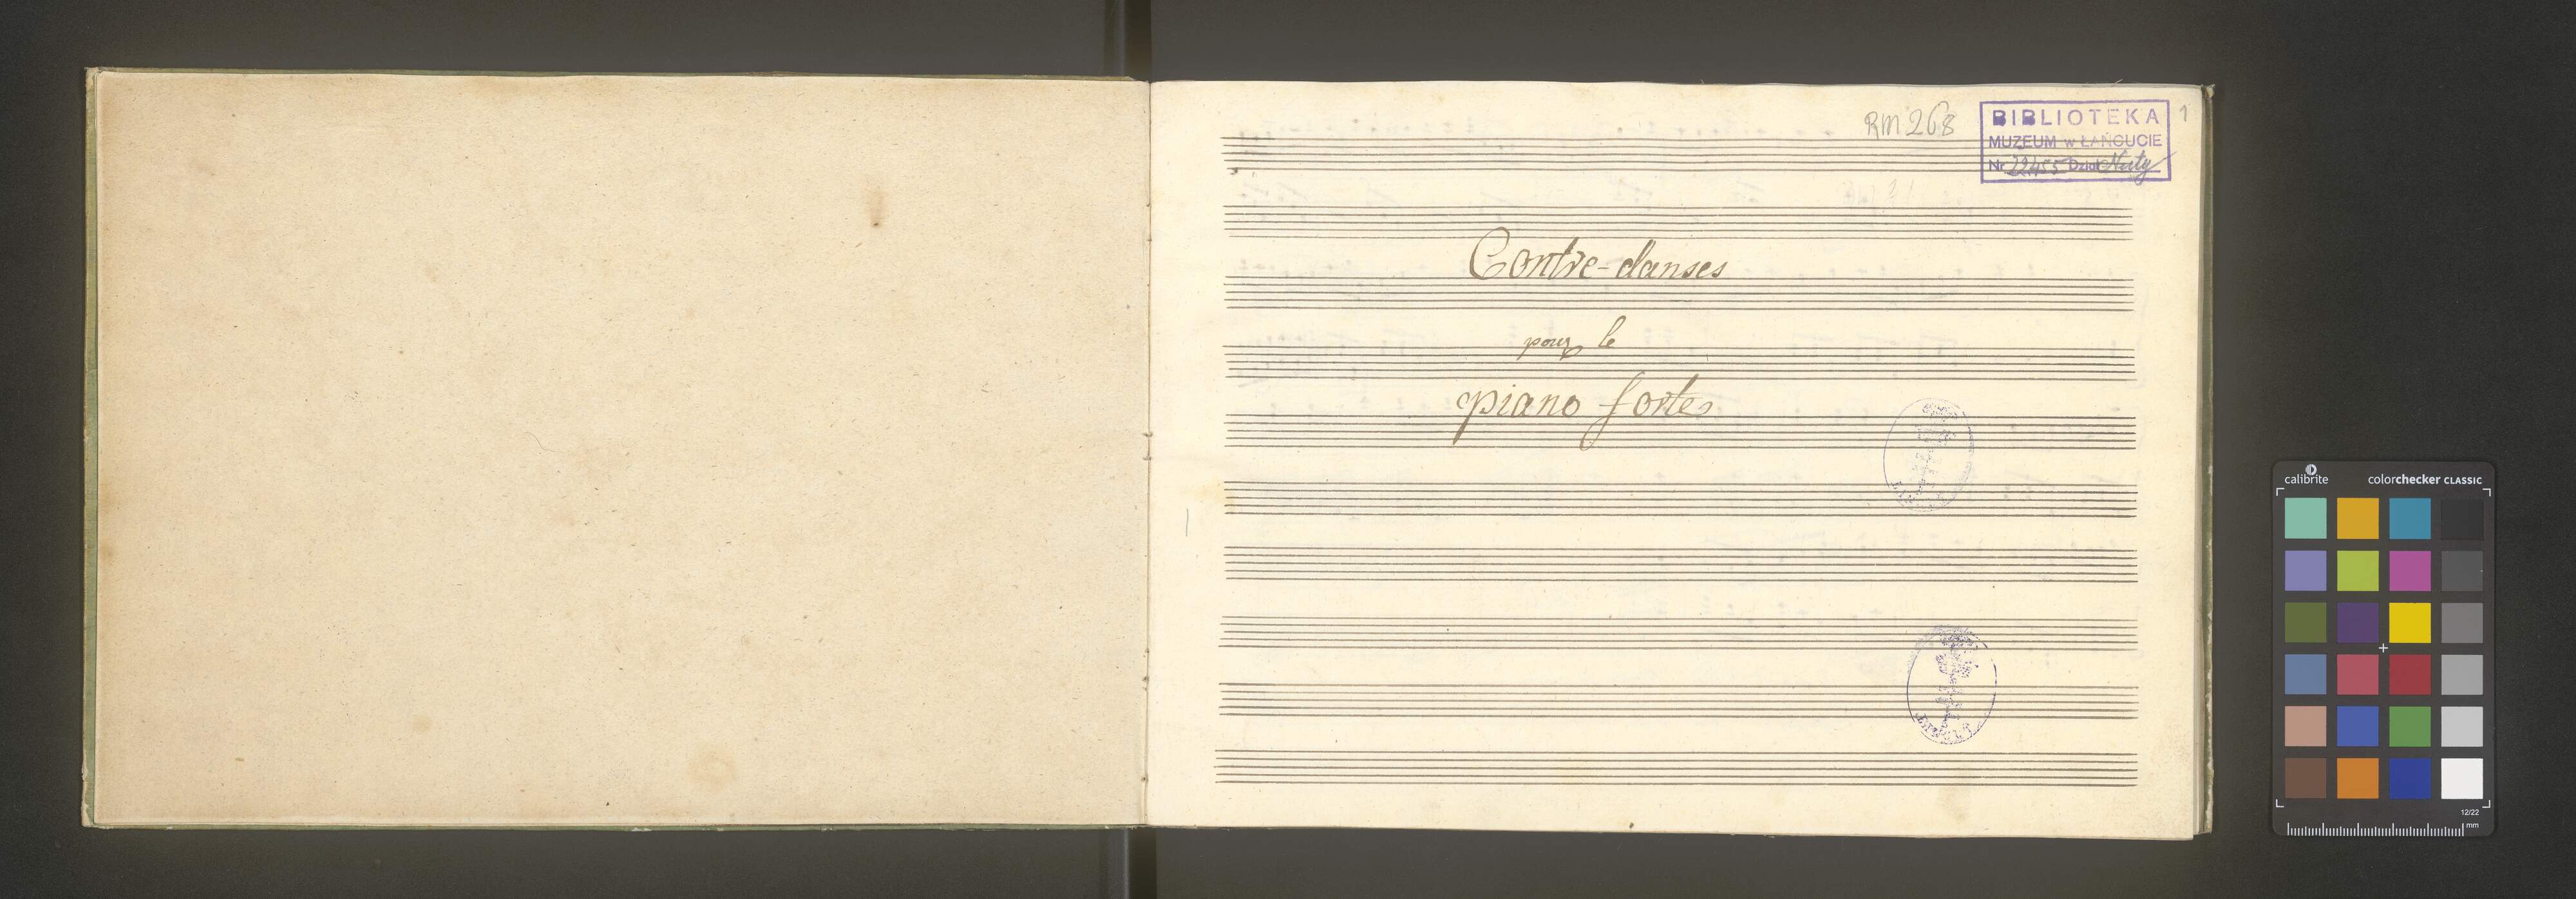 RM 268
BIBLIOTEKA
MUZEUM w ŁAŃCUCIE
Nr 22455 Dział Nuty
1
Contre-danses
pour le
piano forte
calibrite
colorchecker CLASSIC
12/22
mm